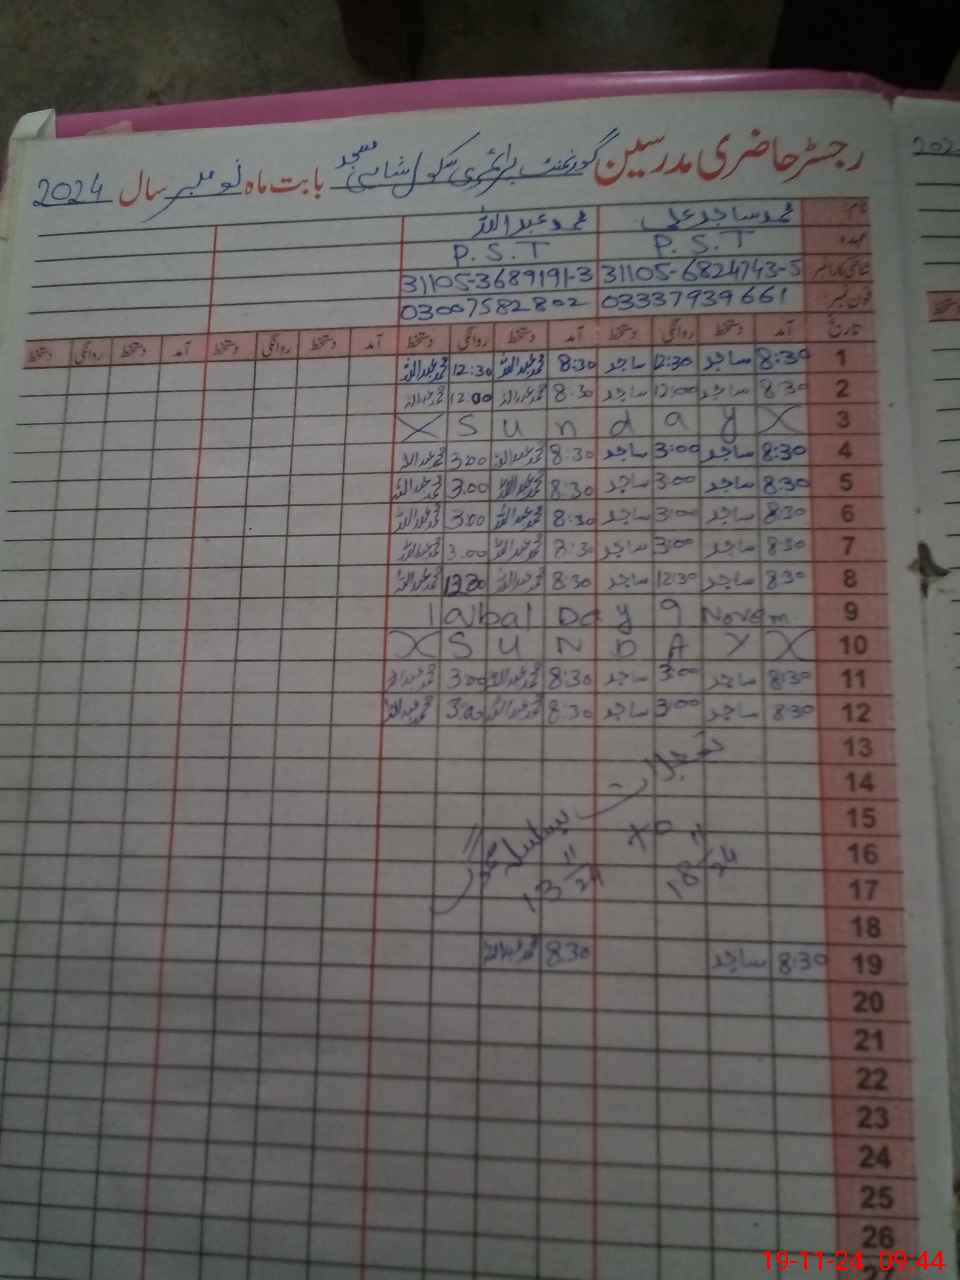 رجسٹر حاضری مدرسین گورنمنٹ پرائمری سکول مسجد بابت ماہ نومبر سال 2024
نام محمد ساجد علی محمد عبداللہ
عہدہ P.S.T P.S.T
شناختی کارڈ نمبر 31105-6824743-5 31105-3689191-3
فون نمبر 03337939661 03007582802
تاریخ آمد دستخط روانگی دستخط آمد دستخط روانگی دستخط آمد دستخط روانگی دستخط آمد دستخط روانگی دستخط
1 8:30 ساجد 12:30 ساجد 8:30 محمد عبداللہ 12:30 محمد عبداللہ
2 8:30 ساجد 12:00 ساجد 8:30 محمد عبداللہ 12:00 محمد عبداللہ
3 X S u n d a y X
4 8:30 ساجد 3:00 ساجد 8:30 محمد عبداللہ 3:00 محمد عبداللہ
5 8:30 ساجد 3:00 ساجد 8:30 محمد عبداللہ 3:00 محمد عبداللہ
6 8:30 ساجد 3:00 ساجد 8:30 محمد عبداللہ 3:00 محمد عبداللہ
7 8:30 ساجد 3:00 ساجد 8:30 محمد عبداللہ 3:00 محمد عبداللہ
8 8:30 ساجد 12:30 ساجد 8:30 محمد عبداللہ 12:30 محمد عبداللہ
9 Iqbal Day 9 Novem
10 X S U N D A Y X
11 8:30 ساجد 3:00 ساجد 8:30 محمد عبداللہ 3:00 محمد عبداللہ
12 8:30 ساجد 3:00 ساجد 8:30 محمد عبداللہ 3:00 محمد عبداللہ
13
14
15
16
17
18
تعطیلات بسلسلہ سموگ
13 11/24 to 18 11/24
19 8:30 ساجد 8:30 محمد عبداللہ
20
21
22
23
24
25
26
19-11-24 09:44